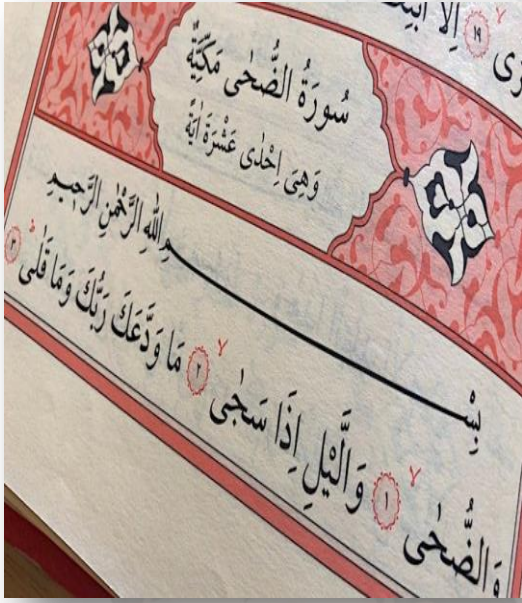 اِلَّا ابْتِ ١٩ ﻻ
سُورَةُ الضُّحٰى مَكِّيَّةٌ
وَهِيَ اِحْدٰى عَشْرَةَ اٰيَةً
بِسْمِ اللّٰهِ الرَّحْمٰنِ الرَّحٖيمِ
وَالضُّحٰىۙ ١ وَالَّيْلِ اِذَا سَجٰىۙ ٢ مَا وَدَّعَكَ رَبُّكَ وَمَا قَلٰىۜ ٣